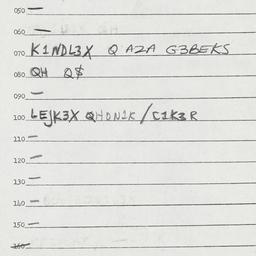 050 —
060 —
070 K1NDL3X Q AZA G3BEKS
080 QH Q$
090 —
100 LEJK3X QHON1K / C1K3R
110 —
120 —
130 —
140 —
150 —
160